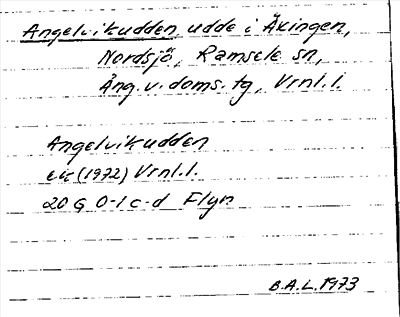 Angelvikudden, udde i Åkingen,
Nordsjö, Ramsele sn,
Ång. v. doms. tg, Vrnl. l.
Angelvikudden
ek (1972) Vrnl. l.
20 G 0-1 c-d Flyn
B.A.L. 1973